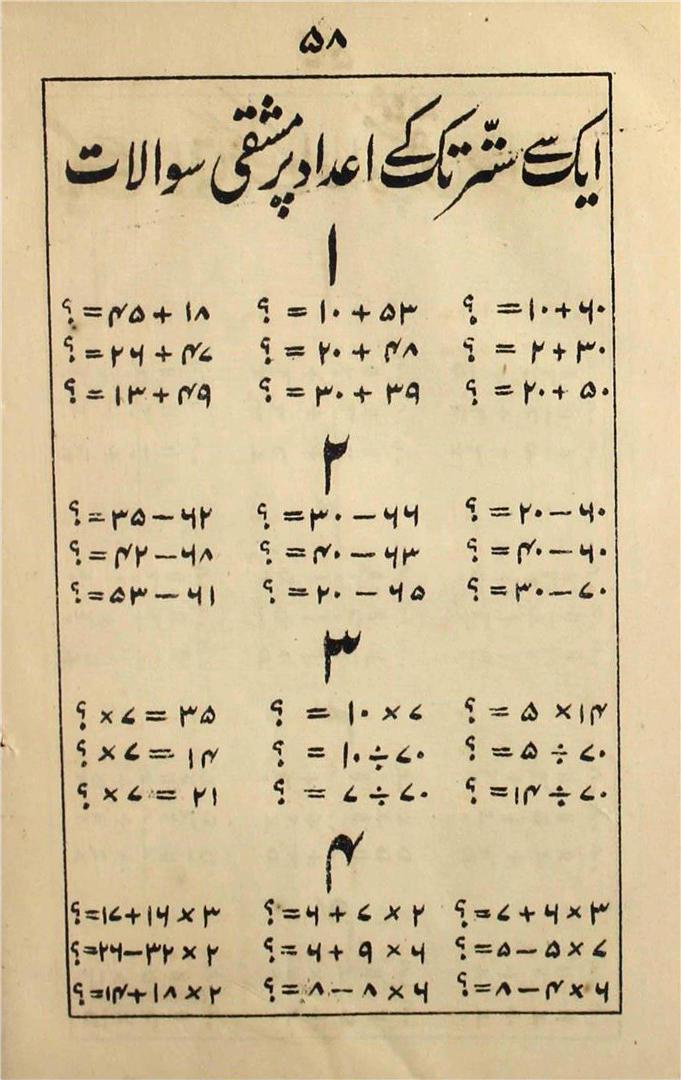 ۵۸
ایک سے ستّر تک کے اعداد پر مشقی سوالات
۱
۶۰+۱۰=؟ ۵۳+۱۰=؟ ۱۸+۴۵=؟
۳۰+۲=؟ ۴۸+۲۰=؟ ۴۷+۲۶=؟
۵۰+۲۰=؟ ۳۹+۳۰=؟ ۴۹+۱۳=؟
۲
۶۰−۲۰=؟ ۶۶−۳۰=؟ ۶۲−۳۵=؟
۶۰−۴۰=؟ ۶۳−۴۰=؟ ۶۸−۴۲=؟
۷۰−۳۰=؟ ۶۵−۲۰=؟ ۶۱−۵۳=؟
۳
۱۴×۵=؟ ۷×۱۰=؟ ۳۵=۷×؟
۷۰÷۵=؟ ۷۰÷۱۰=؟ ۱۴=۷×؟
۷۰÷۱۴=؟ ۷۰÷۷=؟ ۲۱=۷×؟
۴
۳×۶+۷=؟ ۲×۷+۶=؟ ۳×۱۶+۱۷=؟
۷×۵−۵=؟ ۶×۹+۶=؟ ۲×۳۲−۲۶=؟
۶×۴−۸=؟ ۶×۸−۸=؟ ۲×۱۸+۱۴=؟